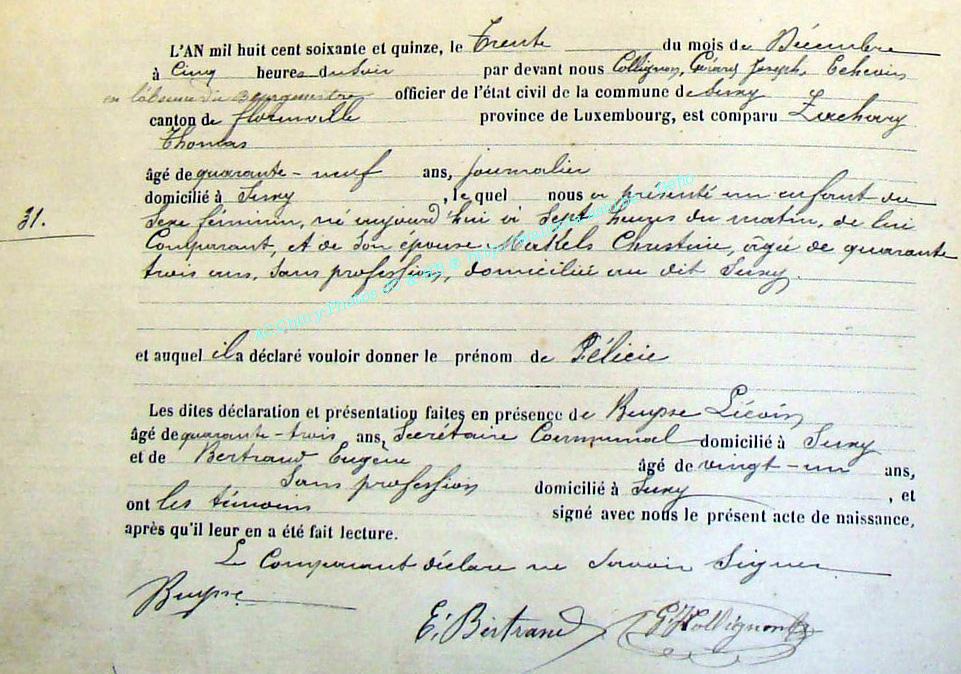 L'AN mil huit cent soixante et quinze, le Trente du mois de Décembre
à Cinq heures du soir par devant nous Collignon, Gérard Joseph, Echevin
en l'absence du Bourgmestre officier de l'état civil de la commune de Suxy
canton de florenville province de Luxembourg, est comparu Zachary
Thomas
âgé de quarante-neuf ans, journalier
domicilié à Suxy, lequel nous a présenté un enfant du
31. Sexe féminin, né aujourd'hui à Sept heures du matin, de lui
Comparant, et de Son épouse Christine, âgée de quarante
trois ans, Sans profession, domiciliée au dit Suxy.
et auquel il a déclaré vouloir donner le prénom de Félicie
Les dites déclaration et présentation faites en présence de Buysse
âgé de quarante-trois ans, Secrétaire Communal domicilié à Suxy
et de Bertrand Eugène âgé de vingt-un ans,
Sans profession domicilié à Suxy, et
ont les témoins signé avec nous le présent acte de naissance,
après qu'il leur en a été fait lecture.
Le Comparant déclare ne Savoir Signer
Buysse
E. Bertrand G. J. Collignon